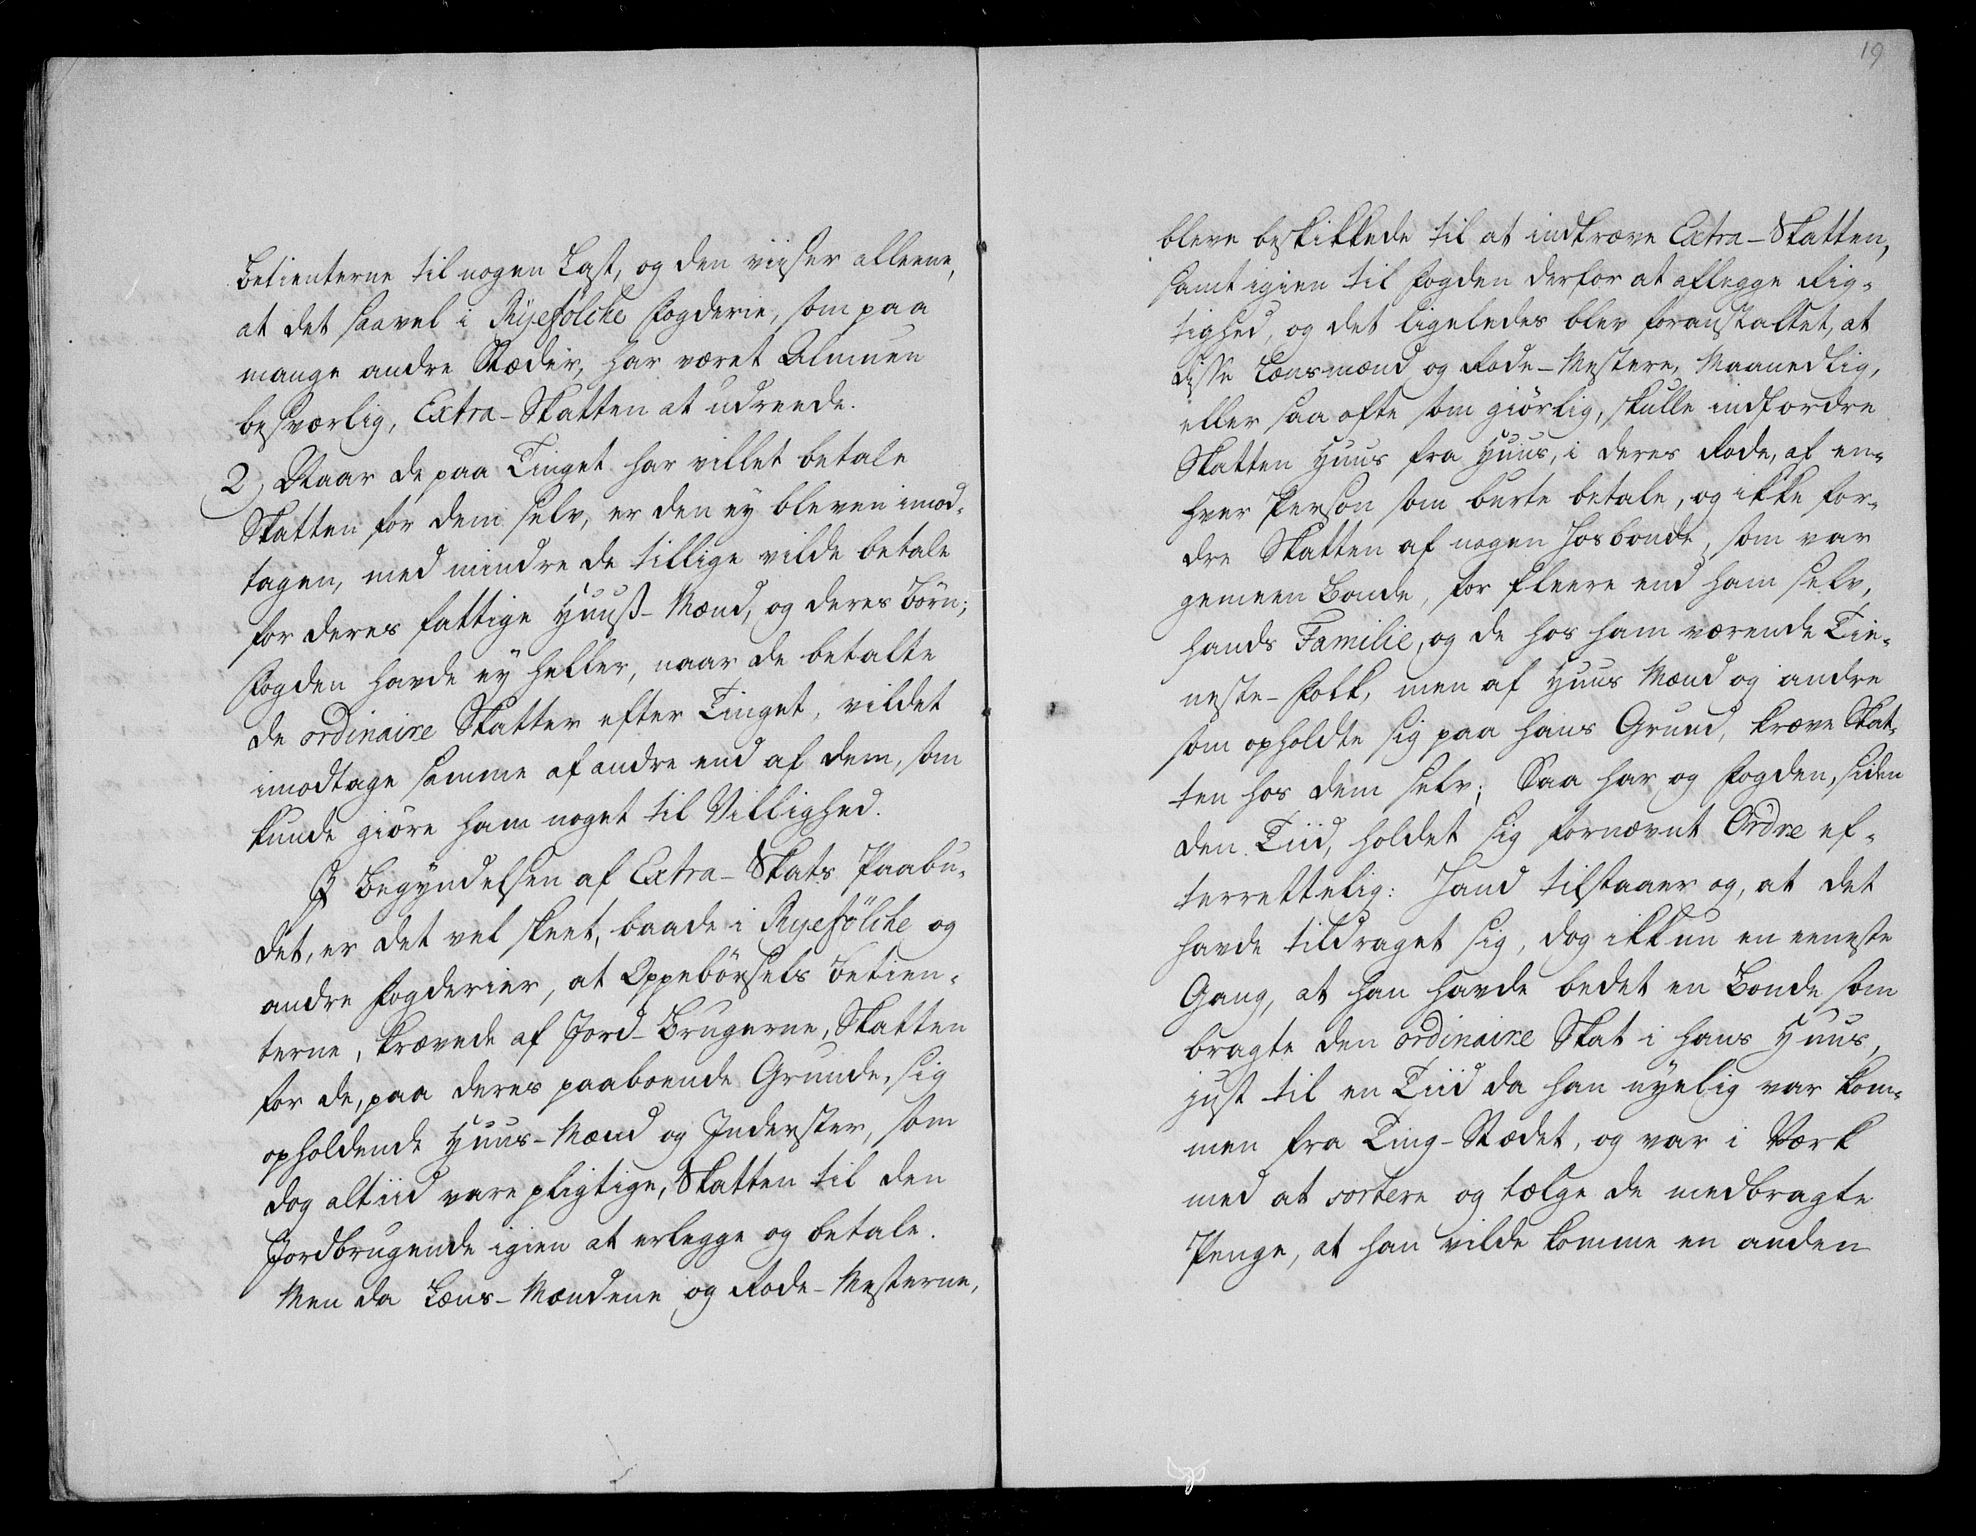 Betienterne til nogen Last, og den viiser alleene,
at det saavel i Ryefölche Fogderie, som paa
mange andre Stæder, har været Almuen
besværlig, Extra-Skatten at udreede.
2, Naar de paa Tinget har villet betale
Skatten for dem selv, er den ey bleven imod-
tagen, med mindre de tillige vilde betale
for deres fattige Huuß-Mænd, og deres Börn;
Fogden havde ey heller, naar de betalte
de ordinaire Skatter efter Tinget, vildet
imodtage samme af andre end af dem, som
kunde giöre ham noget til Villighed.
I Begyndelsen af Extra-Skats Paabu-
det, er det vel skeet, baade i Ryefölche og
andre Fogderier, at Oppebörsels Betien-
terne, krævede af Jord-Brugerne, Skatten
for de, paa deres paaboende Grunde, sig
opholdende Huus-Mænd og Inderster, som
dog altiid vare pligtige, Skatten til den
Jordbrugende igien at erlegge og betale.
Men da Læns-Mændene og Rode-Mesterne,
19
bleve beskikkede til at indkræve Extra-Skatten,
samt igien til Fogden derfor at aflegge Rig-
tighed, og det ligeledes blev foranstaltet, at
disse Lænsmænd og Rode-Mestere, Maanedlig,
eller saa ofte som giörlig, skulle indfordre
Skatten Huus fra Huus, i deres Rode, af en-
hver Person som burte betale, og ikke for-
dre Skatten af nogen Hosbonde, som var
gemeen Bonde, for fleere end ham selv,
hands Familie, og de hos ham værende Tie-
neste-Folk, men af Huus Mænd og andre
som opholdte sig paa hans Grund, kræve Skat-
ten hos dem selv; Saa har og Fogden, siden
den Tiid, holdet sig fornævnt Ordre ef-
terrettelig: Hand tilstaaer og, at det
havde tildraget sig, dog ikkun en eeneste
Gang, at han havde bedet en Bonde som
bragte den ordinaire Skat i hans Huus,
just til en Tiid da han nyelig var kom-
men fra Ting-Stædet, og var i Værk
med at sortere og tælge de medbragte
Penge, at han vilde komme en anden